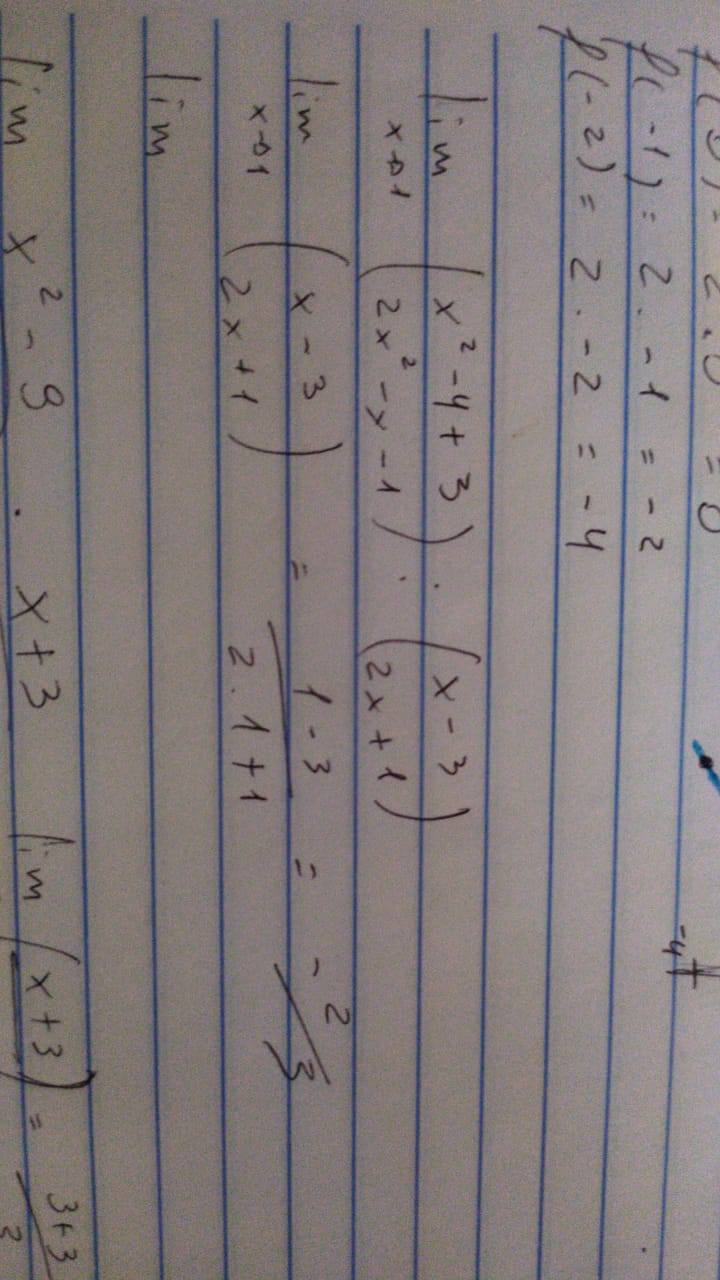 f(0) = 2.0 = 0
f(-1) = 2.-1 = -2
f(-2) = 2.-2 = -4
-4
lim x→1 (x² -4+3 / 2x² -x -1) . (x-3 / 2x+1)
lim x→1 (x-3 / 2x+1) = 1-3 / 2.1+1 = -2/3
lim
lim x² - 9 . x+3 lim (x+3) = 3+3